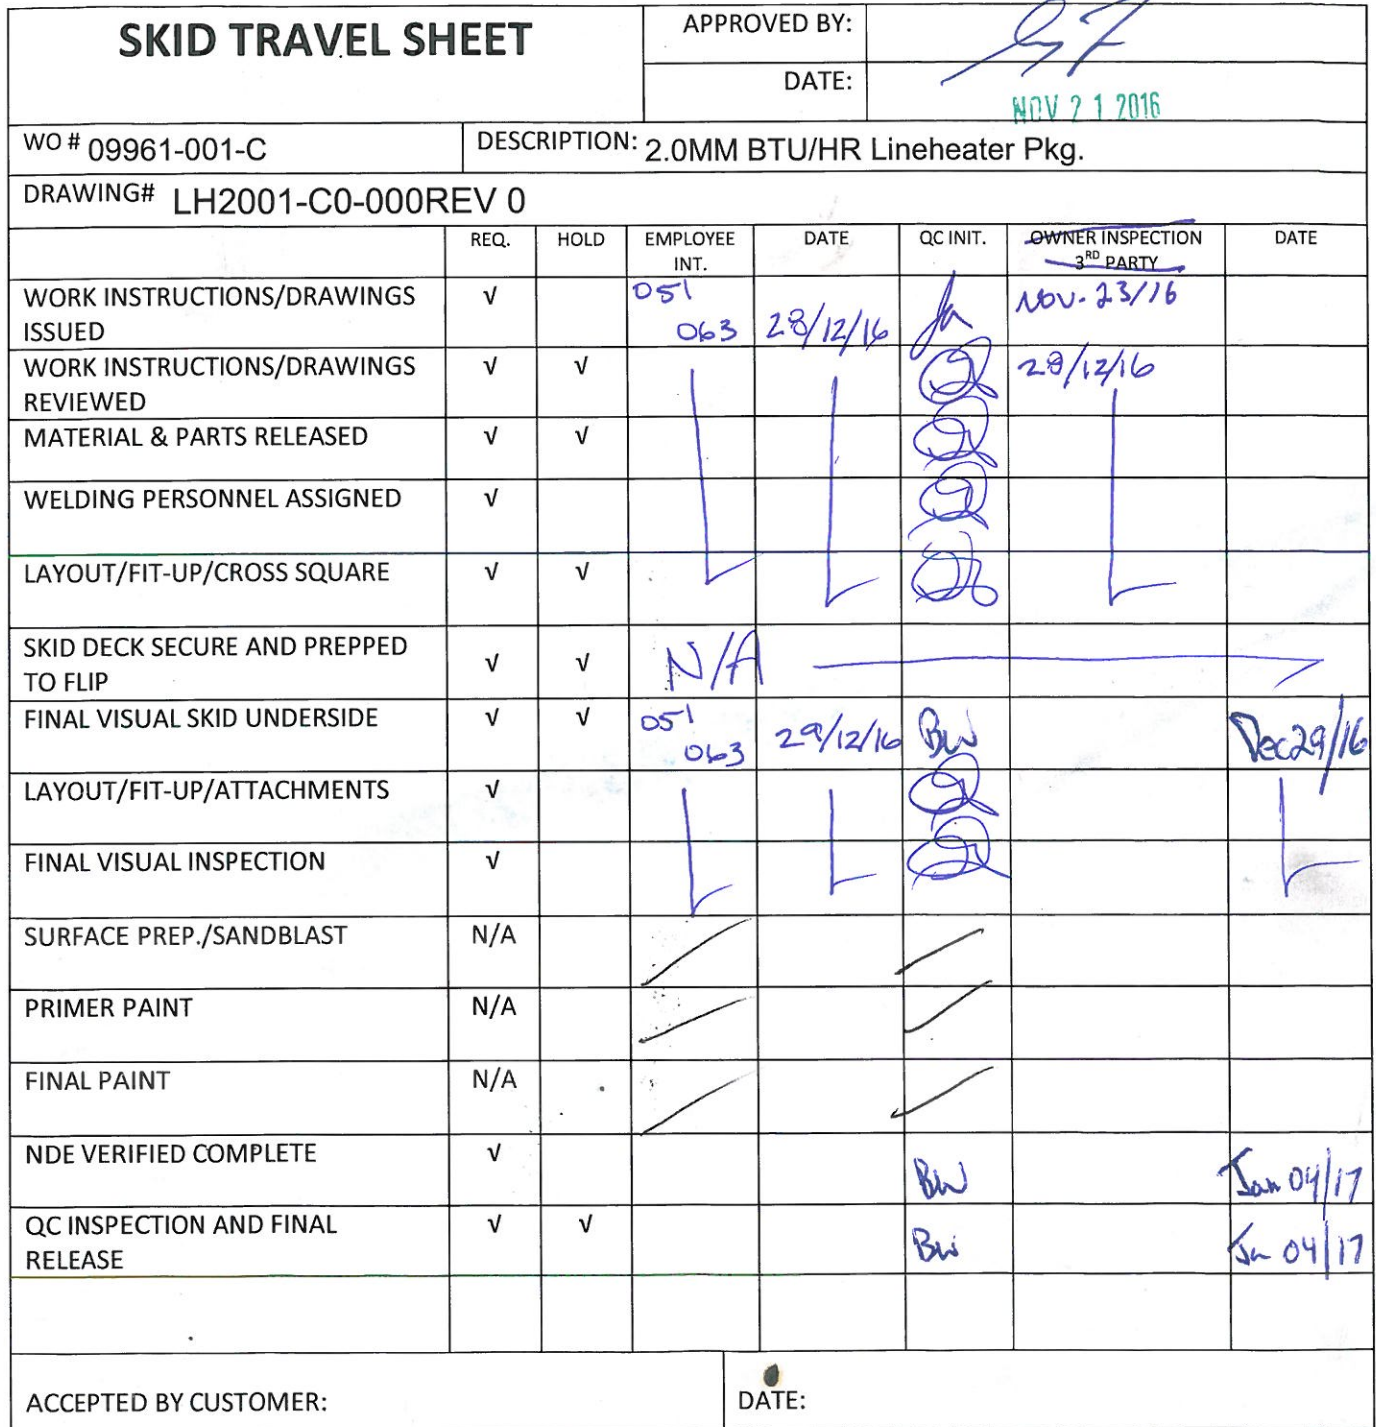 SKID TRAVEL SHEET
APPROVED BY:
DATE:
NOV 21 2016
WO # 09961-001-C
DESCRIPTION: 2.0MM BTU/HR Lineheater Pkg.
DRAWING# LH2001-C0-000REV 0
REQ. HOLD EMPLOYEE INT. DATE QC INIT. OWNER INSPECTION 3RD PARTY DATE
WORK INSTRUCTIONS/DRAWINGS √ 051 Nov. 23/16
ISSUED 063 28/12/16
WORK INSTRUCTIONS/DRAWINGS √ √ 28/12/16
REVIEWED
MATERIAL & PARTS RELEASED √ √
WELDING PERSONNEL ASSIGNED √
LAYOUT/FIT-UP/CROSS SQUARE √ √
SKID DECK SECURE AND PREPPED √ √ N/A
TO FLIP
FINAL VISUAL SKID UNDERSIDE √ √ 051 29/12/16 BW Dec 29/16
063
LAYOUT/FIT-UP/ATTACHMENTS √
FINAL VISUAL INSPECTION √
SURFACE PREP./SANDBLAST N/A
PRIMER PAINT N/A
FINAL PAINT N/A
NDE VERIFIED COMPLETE √ BW Jan 04/17
QC INSPECTION AND FINAL √ √ BW Jan 04/17
RELEASE
ACCEPTED BY CUSTOMER:
DATE: